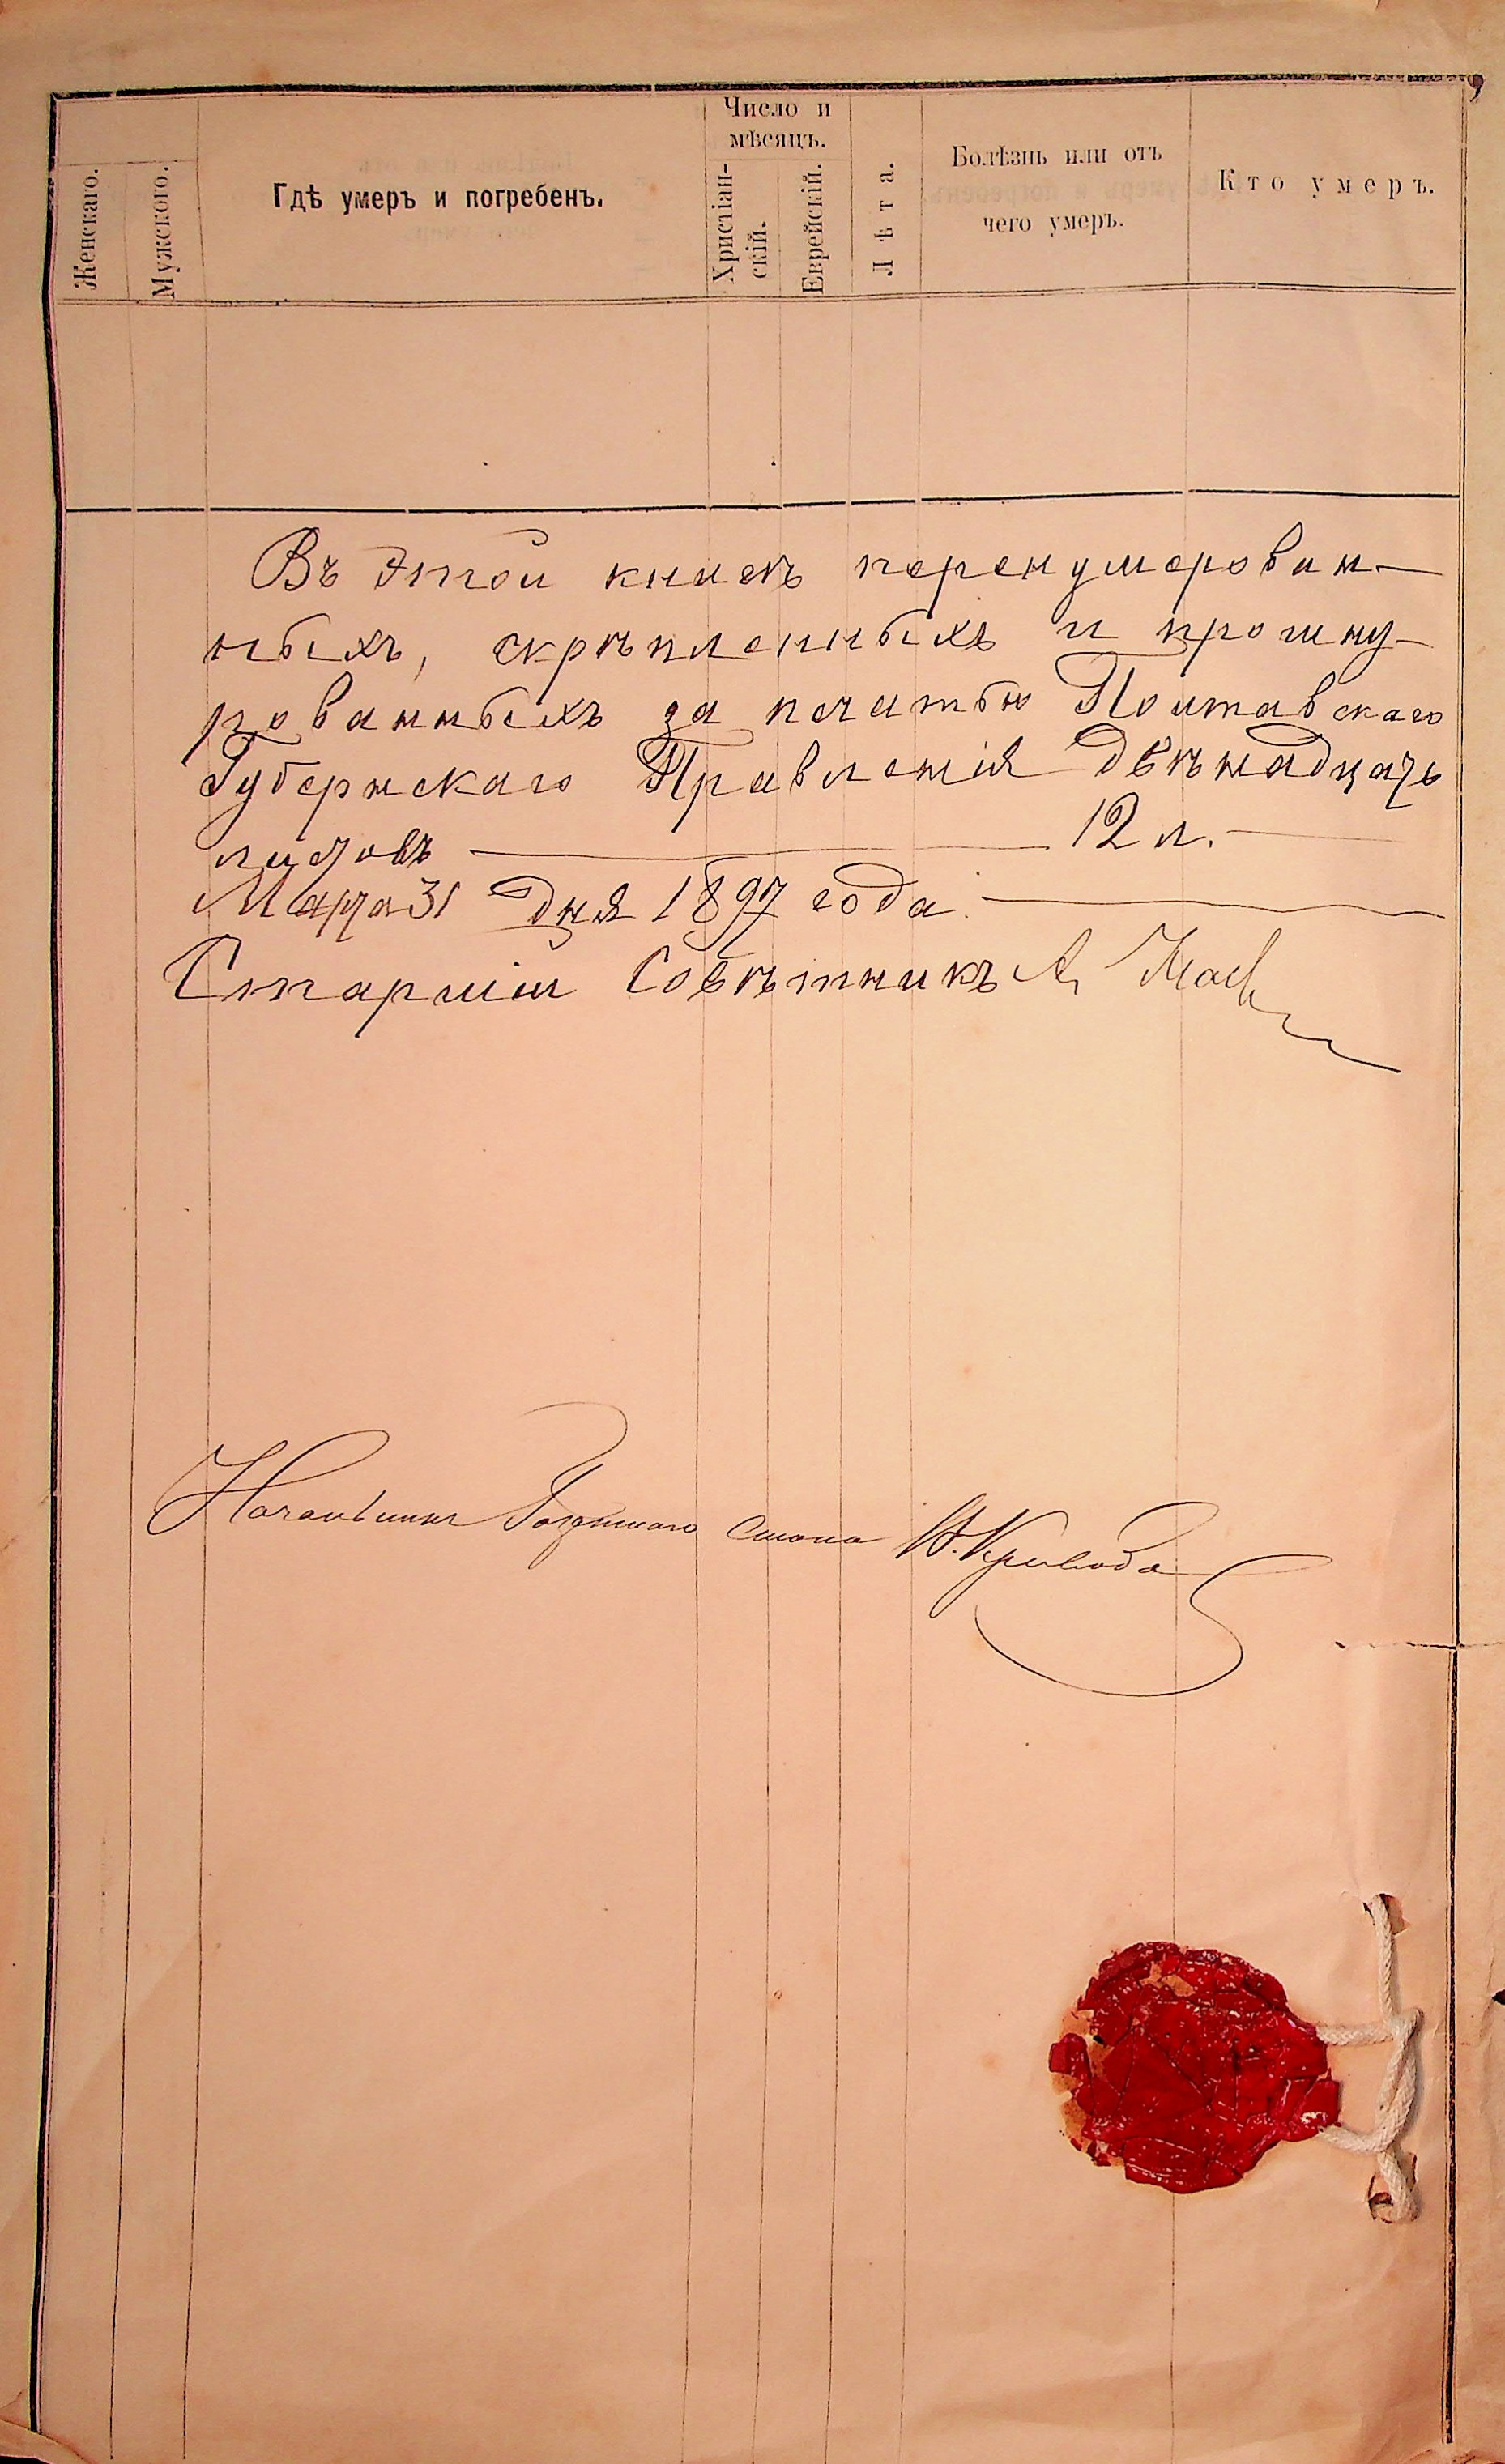 Женскаго.
Мужского.
Гдѣ умеръ и погребенъ.
Число и
мѣсяцъ.
Христіан-
скій.
Еврейскій.
Лѣта.
Болѣзнь или отъ
чего умеръ.
Кто умеръ.
Въ этой книгѣ перенумерован-
ныхъ, скрѣпленныхъ и прошну-
рованныхъ за печатью Полтавскаго
Губернскаго Правленія двѣнадцать
листовъ — 12 л. —
Марта 31 дня 1897 года. —
Старшій Совѣтникъ А.
Начальникъ Газетнаго Стола